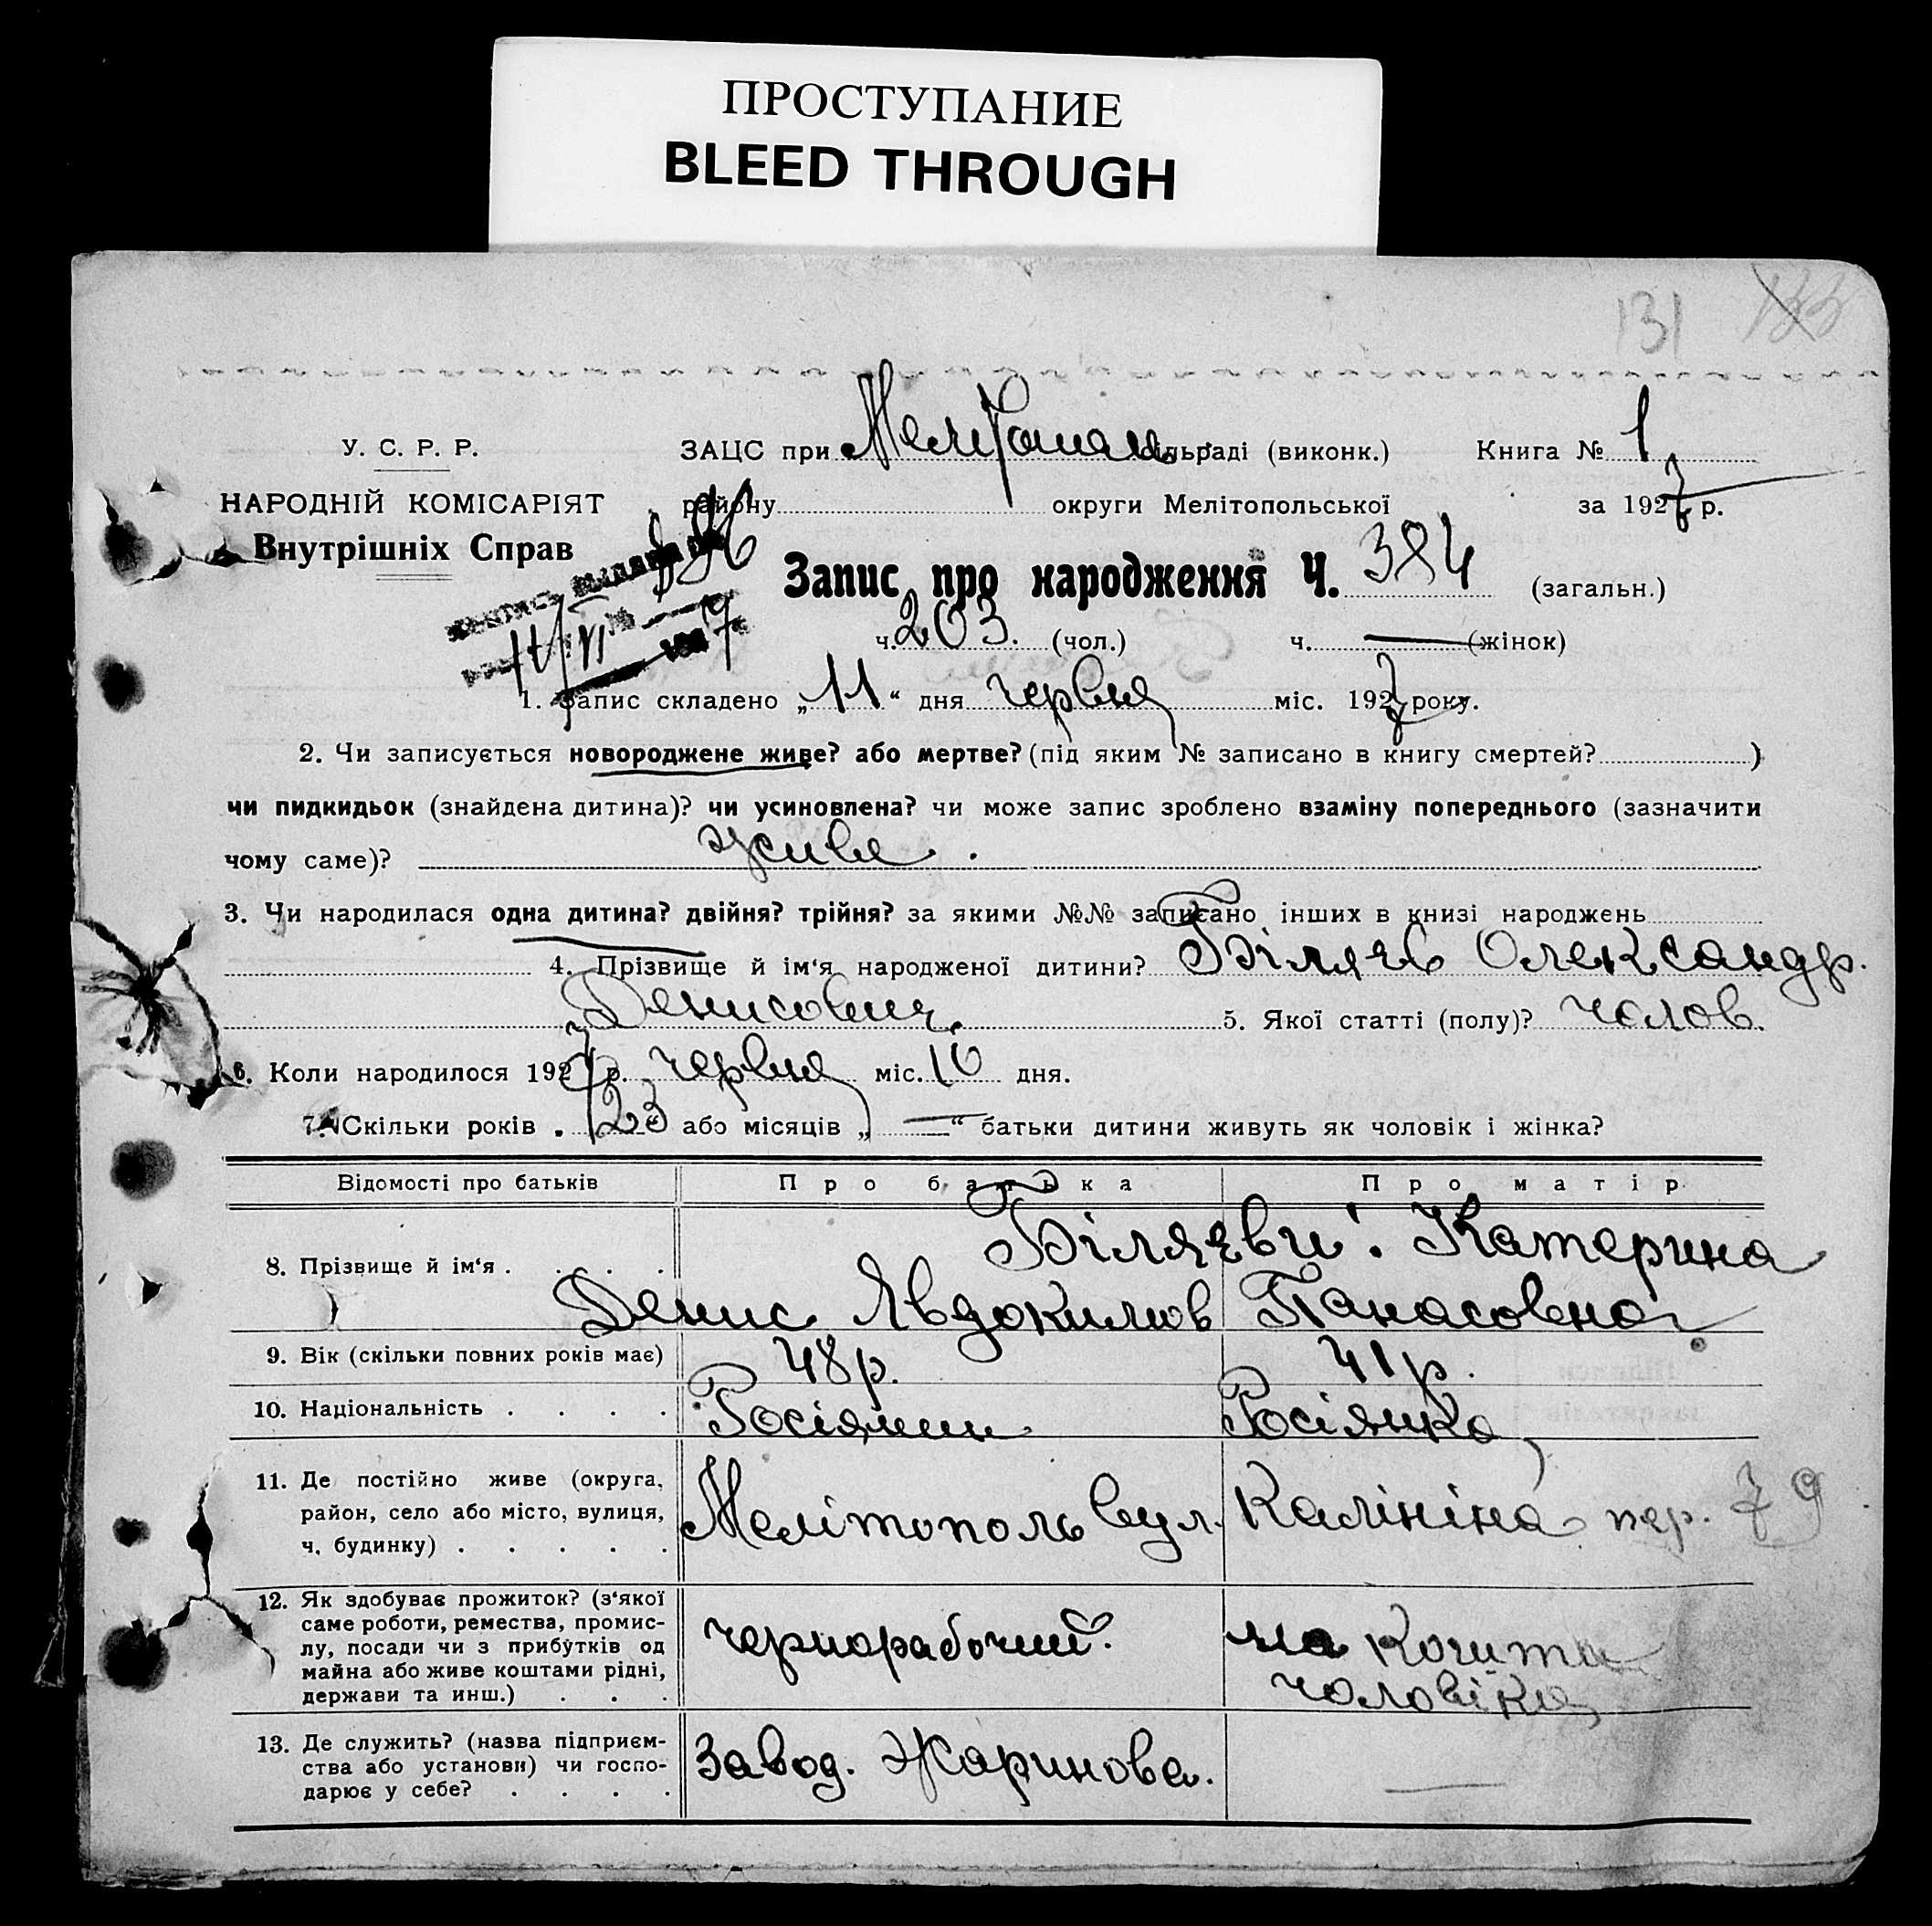 ПРОСТУПАНИЕ
BLEED THROUGH
131 133
У. С. Р. Р.
НАРОДНІЙ КОМІСАРІЯТ
Внутрішніх Справ
ЗАЦС при Мелітополь сільраді (виконк.) Книга № 1
району округи Мелітопольської за 1927 р.
Запис про народження Ч. 384 (загальн.)
ч. 203. (чол.) ч. — (жінок)
1. Запис складено „11“ дня червня міс. 1927 року.
2. Чи записується новороджене живе? або мертве? (під яким № записано в книгу смертей? )
чи пидкидьок (знайдена дитина)? чи усиновлена? чи може запис зроблено взаміну попереднього (зазначити
чому саме)? живе.
3. Чи народилася одна дитина? двійня? трійня? за якими №№ записано інших в книзі народжень
4. Прізвище й ім‘я народженої дитини? Біляєв Олександр.
Денисович. 5. Якої статті (полу)? чолов.
6. Коли народилося 1927 р. червня міс. 10 дня.
7. Скільки років „23“ або місяців „—“ батьки дитини живуть як чоловік і жінка?
Відомості про батьків Про батька Про матір
8. Прізвище й ім‘я . . . . Біляєви: Катерина
Денис Явдокимов Панасовна
9. Вік (скільки повних років має) 48 р. 41 р.
10. Національність . . . . Росіянин Росіянка
11. Де постійно живе (округа,
район, село або місто, вулиця,
ч. будинку) . . . . . Мелітополь вул. Калініна пер. 79
12. Як здобуває прожиток? (з‘якої
саме роботи, ремества, промис-
лу, посади чи з прибутків од
майна або живе коштами рідні,
держави та инш.) . . . чернорабочий. на кошти
чоловіка
13. Де служить? (назва підприєм-
ства або установи) чи госпо-
дарює у себе? . . . . Завод. Жаринова. —